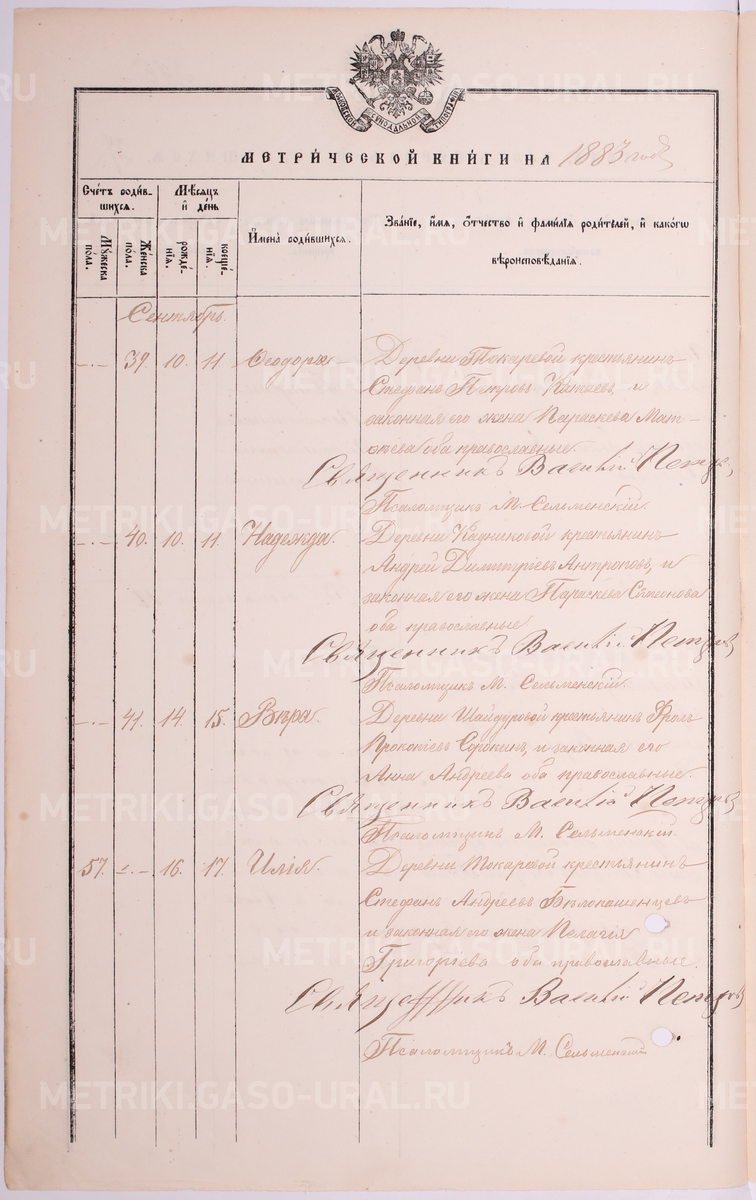 МОСКОВСКОЙ СѴНОДАЛЬНОЙ ТИПОГРАФІИ
МЕТРИЧЕСКОЙ КНИГИ НА 1883 годъ
Счетъ родившихся.
Мѣсяцъ и день
Имена родившихся.
Званіе, имя, отчество и фамилія родителей, и какого вѣроисповѣданія.
Мужеска пола.
Женска пола.
рожденія.
крещенія.
Сентябрь.
-.- 39. 10. 11. Ѳеодора Деревни Токаревой крестьянинъ
Стефанъ Петровъ и
законная его жена Параскева Мат-
ѳѣева оба православные.
Священникъ Петровъ
Псаломщикъ М. Сельменскій.
-.- 40. 10. 11. Надежда. Деревни Кадниковой крестьянинъ
Андрей Димитріевъ Антроповъ, и
законная его жена Параскева Симеонова
оба православные
Священникъ Петровъ
Псаломщикъ М. Сельменскій.
-.- 41. 14. 15. Вѣра. Деревни Шайдуровой крестьянинъ Фролъ
Прокопіевъ Сорокинъ, и законная его
Анна Андреева оба православные.
Священникъ Петровъ
Псаломщикъ М. Сельменскій.
57. -.- 16. 17. Илія. Деревни Токаревой крестьянинъ
Стефанъ Андреевъ Бѣлокашенцевъ
и законная его жена Пелагія
Григоріева оба православные.
Священникъ Петровъ
Псаломщикъ М. Сельменскій
METRIKI.GASO-URAL.RU